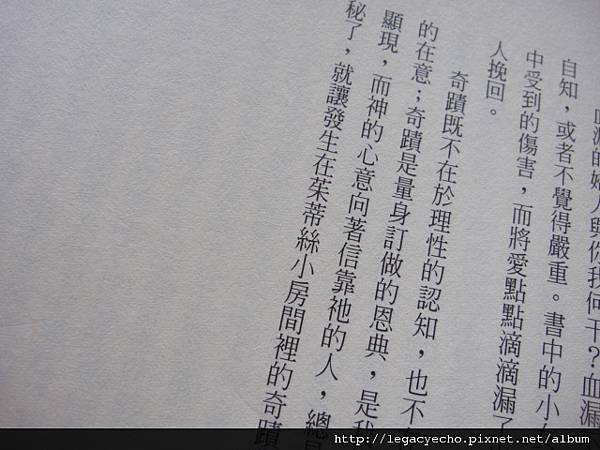 血漏的婦人與你我何干？血漏
自知，或者不覺得嚴重。書中的小女
中受到的傷害，而將愛點點滴滴漏了
人挽回。
奇蹟既不在於理性的認知，也不在
的在意；奇蹟是量身訂做的恩典，是我
顯現，而神的心意向著信靠祂的人，總是
秘了，就讓發生在茱蒂絲小房間裡的奇蹟
http://legacyecho.pixnet.net/album